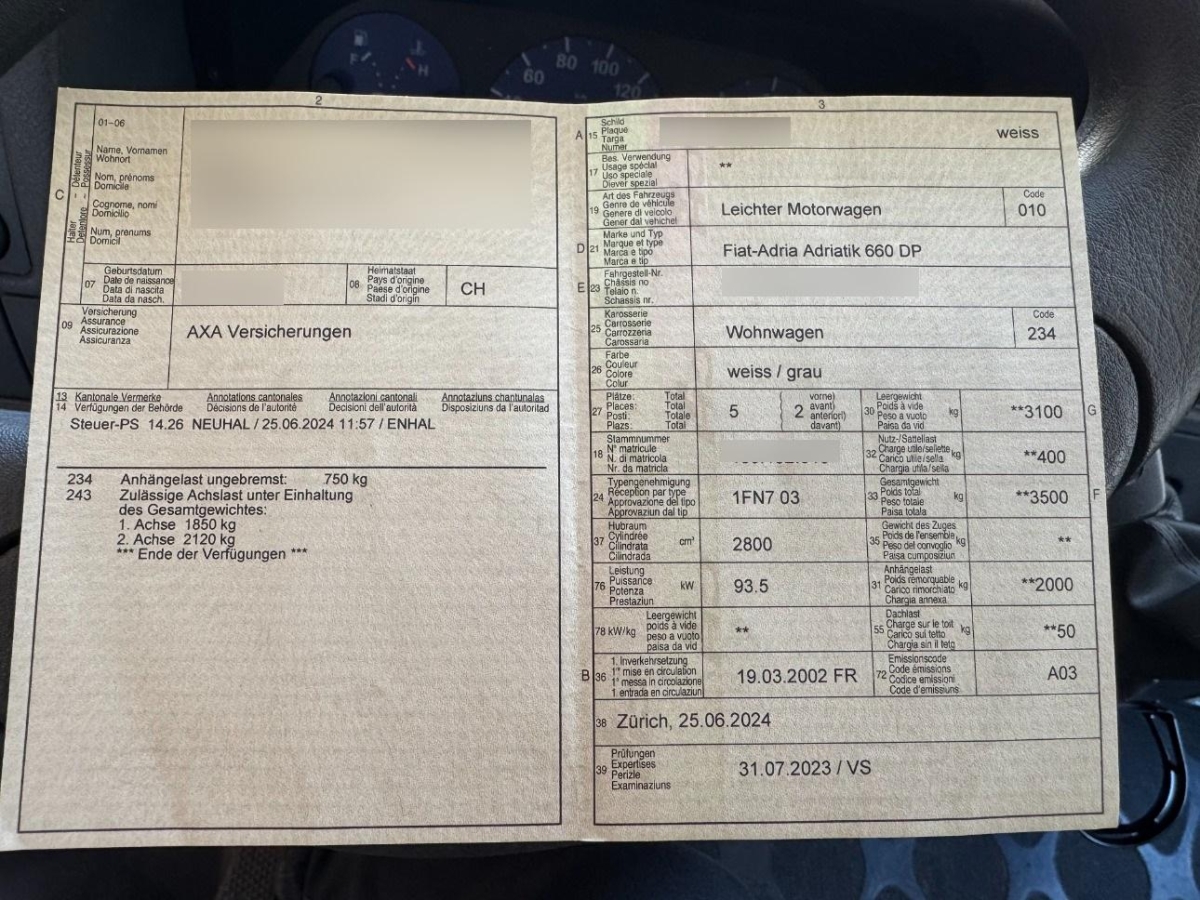 F
H
60
80
100
120
2
01-06
Name, Vornamen
Wohnort
Nom, prénoms
Domicile
Cognome, nomi
Domicilio
Num, prenums
Domicil
C
Halter – Détenteur
Detentore – Possessur
07
Geburtsdatum
Date de naissance
Data di nascita
Data da nasch.
08
Heimatstaat
Pays d'origine
Paese d'origine
Stadi d'origin
CH
09
Versicherung
Assurance
Assicurazione
Assicuranza
AXA Versicherungen
13 Kantonale Vermerke Annotations cantonales Annotazioni cantonali Annotaziuns chantunalas
14 Verfügungen der Behörde Décisions de l'autorité Decisioni dell'autorità Disposiziuns da l'autoritad
Steuer-PS 14.26 NEUHAL / 25.06.2024 11:57 / ENHAL
234 Anhängelast ungebremst: 750 kg
243 Zulässige Achslast unter Einhaltung
des Gesamtgewichtes:
1. Achse 1850 kg
2. Achse 2120 kg
*** Ende der Verfügungen ***
3
A 15
Schild
Plaque
Targa
Numer
weiss
17
Bes. Verwendung
Usage spécial
Uso speciale
Diever spezial
**
19
Art des Fahrzeugs
Genre de véhicule
Genere di veicolo
Gener dal vehichel
Leichter Motorwagen
Code
010
D 21
Marke und Typ
Marque et type
Marca e tipo
Marca e tip
Fiat-Adria Adriatik 660 DP
E 23
Fahrgestell-Nr.
Châssis no
Telaio n.
Schassis nr.
25
Karosserie
Carrosserie
Carrozzeria
Carossaria
Wohnwagen
Code
234
26
Farbe
Couleur
Colore
Colur
weiss / grau
27
Plätze: Total
Places: Total
Posti: Totale
Plazs: Total
5
2
vorne)
avant)
anteriori)
davant)
30
Leergewicht
Poids à vide
Peso a vuoto
Paisa da vid
kg
**3100
G
18
Stammnummer
N° matricule
N. di matricola
Nr. da matricla
32
Nutz-/Sattellast
Charge utile/sellette
Carico utile/sella
Chargia utila/sella
kg
**400
24
Typengenehmigung
Réception par type
Approvazione del tipo
Approvaziun dal tip
1FN7 03
33
Gesamtgewicht
Poids total
Peso totale
Paisa totala
kg
**3500
F
37
Hubraum
Cylindrée
Cilindrata
Cilindrada
cm³
2800
35
Gewicht des Zuges
Poids de l'ensemble
Peso del convoglio
Paisa cumposiziun
kg
**
76
Leistung
Puissance
Potenza
Prestaziun
kW
93.5
31
Anhängelast
Poids remorquable
Carico rimorchiato
Chargia annexa
kg
**2000
78 kW/kg
Leergewicht
poids à vide
peso a vuoto
paisa da vid
**
55
Dachlast
Charge sur le toit
Carico sul tetto
Chargia sin il tetg
kg
**50
B 36
1. Inverkehrsetzung
1re mise en circulation
1a messa in circolazione
1 entrada en circulaziun
19.03.2002 FR
72
Emissionscode
Code émissions
Codice emissioni
Code d'emissiuns
A03
38 Zürich, 25.06.2024
39
Prüfungen
Expertises
Perizie
Examinaziuns
31.07.2023 / VS